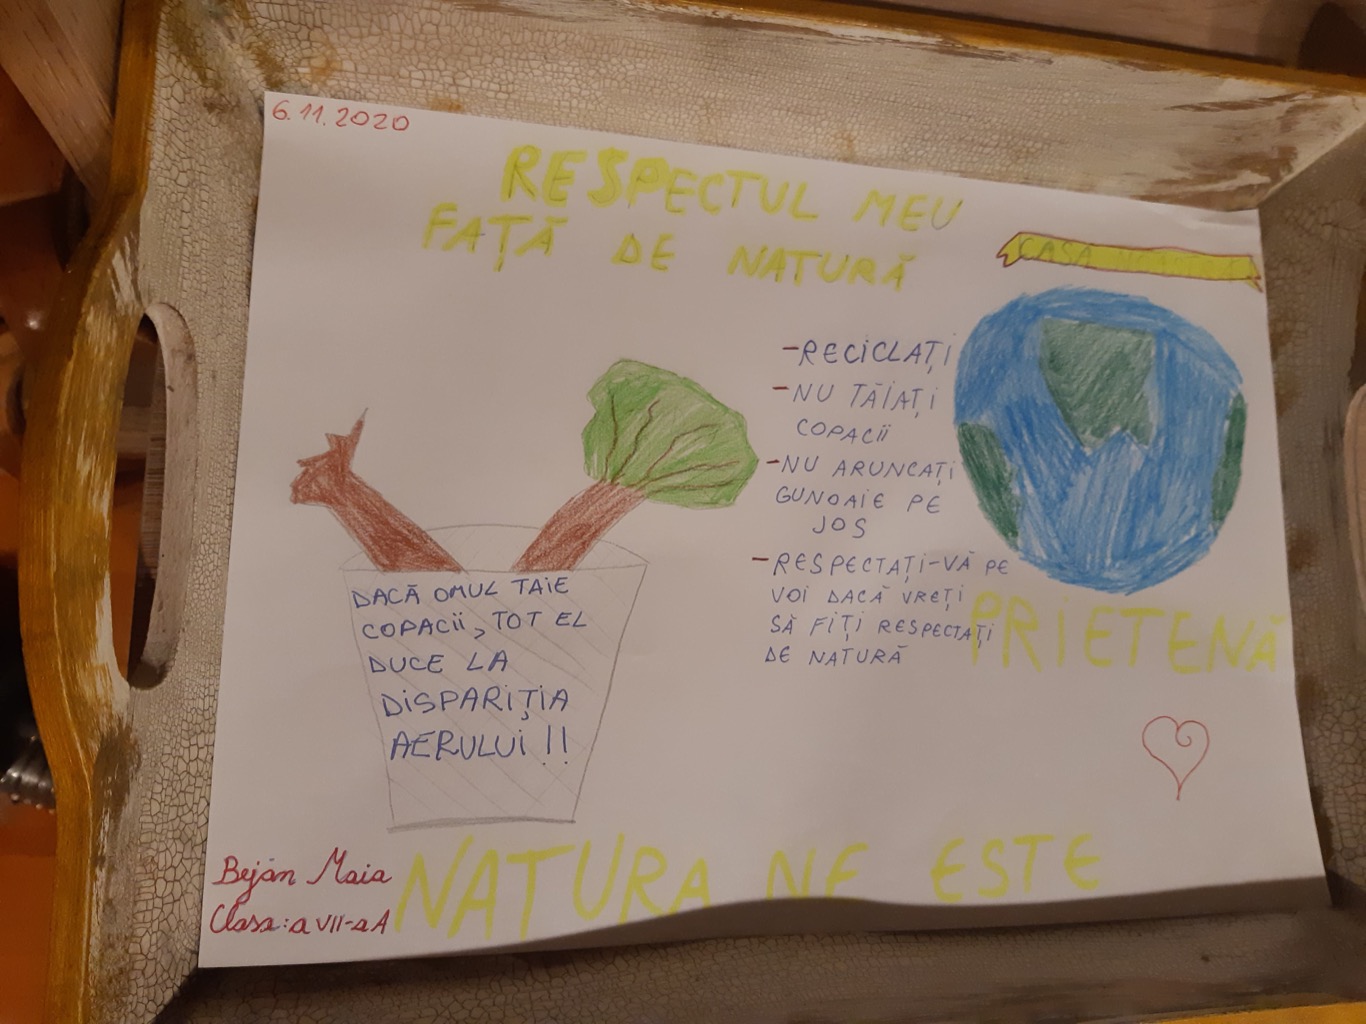 6.11.2020
RESPECTUL MEU
FAȚĂ DE NATURĂ
CASA NOASTRĂ
-RECICLAȚI
-NU TĂIAȚI
COPACII
-NU ARUNCAȚI
GUNOAIE PE
JOS
-RESPECTAȚI-VĂ PE
VOI DACĂ VREȚI
SĂ FIȚI RESPECTAȚI
DE NATURĂ
DACĂ OMUL TAIE
COPACII, TOT EL
DUCE LA
DISPARIȚIA
AERULUI !!
NATURA NE ESTE
PRIETENĂ
Bejan Maia
Clasa: a VII-a A